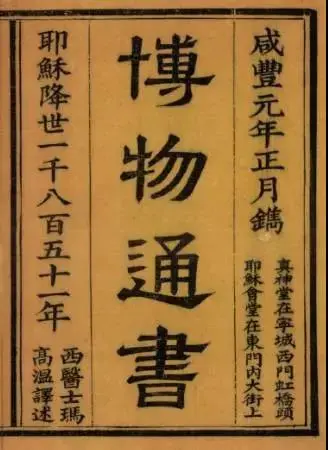 咸豐元年正月鐫
真神堂在寧城西門虹橋頭
耶穌會堂在東門內大街上
博物通書
耶穌降世一千八百五十一年
西醫士瑪
高溫譯述